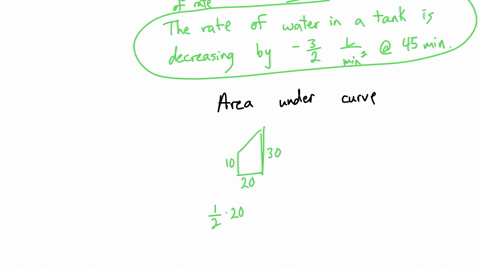 of rate
The rate of water in a tank is
decreasing by - 3/2 L/min² @ 45 min.
Area under curve
10 30
20
1/2 · 20